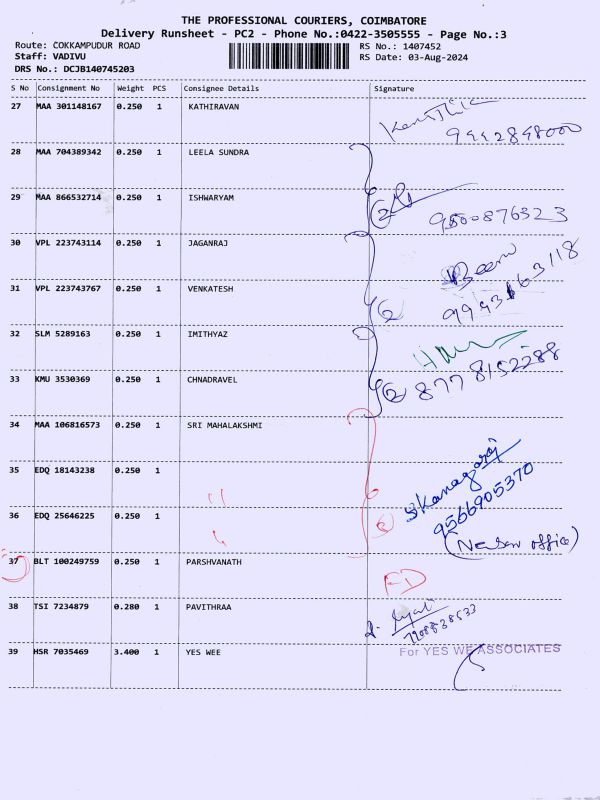 THE PROFESSIONAL COURIERS, COIMBATORE
Delivery Runsheet - PC2 - Phone No.:0422-3505555 - Page No.:3
Route: COKKAMPUDUR ROAD
RS No.: 1407452
Staff: VADIVU
RS Date: 03-Aug-2024
DRS No.: DCJB140745203
S No Consignment No Weight PCS Consignee Details Signature
27 MAA 301148167 0.250 1 KATHIRAVAN
28 MAA 704389342 0.250 1 LEELA SUNDRA
29 MAA 866532714 0.250 1 ISHWARYAM
9500876323
30 VPL 223743114 0.250 1 JAGANRAJ
31 VPL 223743767 0.250 1 VENKATESH
32 SLM 5289163 0.250 1 IMITHYAZ
33 KMU 3530369 0.250 1 CHNADRAVEL
8778152288
34 MAA 106816573 0.250 1 SRI MAHALAKSHMI
35 EDQ 18143238 0.250 1
36 EDQ 25646225 0.250 1
9566905370
37 BLT 100249759 0.250 1 PARSHVANATH
FD
38 TSI 7234879 0.280 1 PAVITHRAA
39 HSR 7035469 3.400 1 YES WEE
For YES WE ASSOCIATES